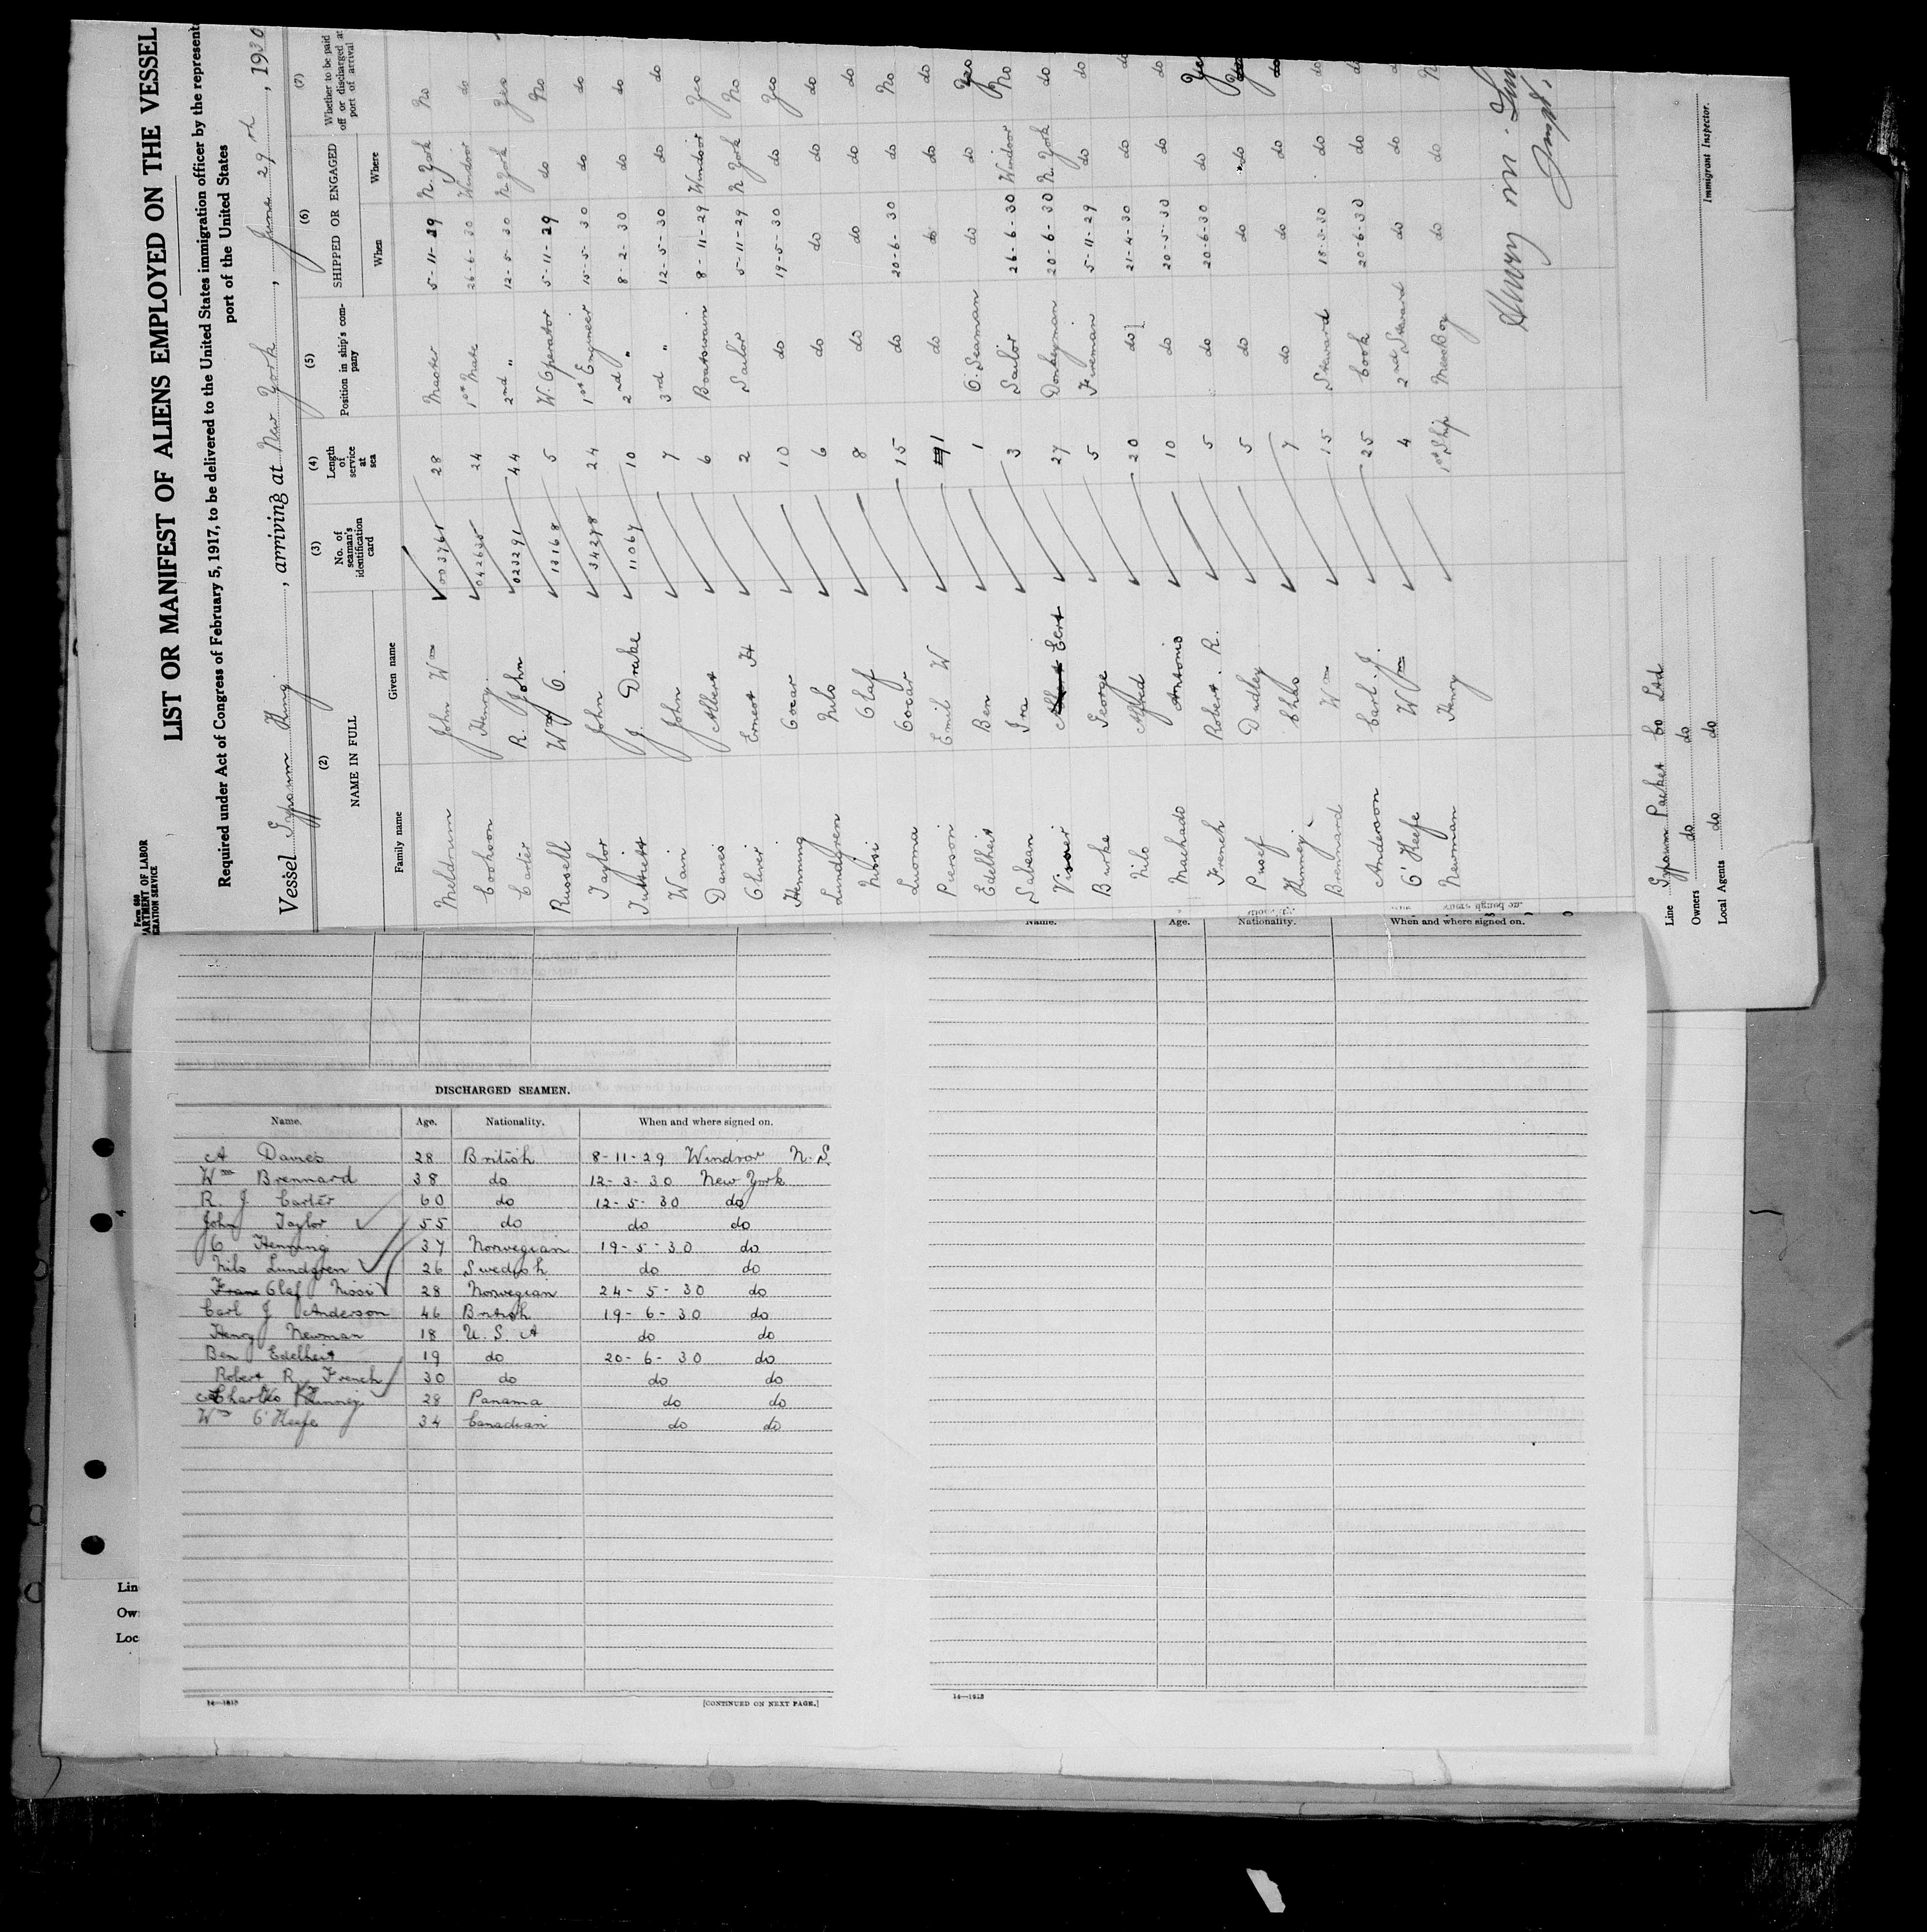 Form 680
LIST OR MANIFEST OF ALIENS EMPLOYED ON THE VESSEL
Required under Act of Congress of February 5, 1917, to be delivered to the United States immigration officer by the represent
port of the United States
Vessel Gypsum King, arriving at New York, June 29th, 1930
(2) NAME IN FULL (3) No. of seaman's identification card (4) Length of service at sea (5) Position in ship's company (6) SHIPPED OR ENGAGED (7) Whether to be paid off or discharged at port of arrival
Family name Given name When Where
Meldrum John Wm 003761 28 Master 5-11-29 N. York No
Coohoon Henry 042635 24 1st Mate 26-6-30 Windsor do
Carter R. John 023291 44 2nd " 12-5-30 N. York Yes
Russell Wm C. 13168 5 W. Operator 5-11-29 do No
Taylor John 34278 24 1st Engineer 15-5-30 do do
J. Drake 11067 10 2nd " 8-2-30 do do
Wain John 7 3rd " 12-5-30 do do
Davies Albert 6 Boatswain 8-11-29 Windsor Yes
Oliver Ernest H 2 Sailor 5-11-29 N York No
Henning Oscar 10 do 19-5-30 do Yes
Lundgren Nils 6 do do do do
Nissi Olaf 8 do do do do
Luoma Oscar 15 do 20-6-30 do No
Pierson Emil W 1 do do do do
Edelheit Ben 1 O. Seaman do do Yes
Sabean Ira 3 Sailor 26-6-30 Windsor No
Visser Bert 27 Donkeyman 20-6-30 N. York do
Burke George 5 Fireman 5-11-29 do do
Nilo Alfred 20 do 21-4-30 do do
Machado Antonio 10 do 20-5-30 do do
French Robert. R. 5 do 20-6-30 do Yes
Pusef Dudley 5 do do do
Kinney Chas 7 do do do do
Brennard Wm 15 Steward 18-3-30 do do
Anderson Carl. J. 25 Cook 20-6-30 do do
O'Keefe Wm 4 2nd Steward do do do
Newman Henry 1st Ship MessBoy do do
Henry M.
Line Gypsum Packet Co Ltd
Owners do do
Local Agents do do
Immigrant Inspector.
DISCHARGED SEAMEN.
Name. Age. Nationality. When and where signed on.
A Davies 28 British 8-11-29 Windsor N. S.
Wm Brennard 38 do 12-3-30 New York
R. J. Carter 60 do 12-5-30 do
John Taylor 55 do do do
O Henning 37 Norwegian 19-5-30 do
Nils Lundgren 26 Swedish do do
Olaf Nissi 28 Norwegian 24-5-30 do
Carl J Anderson 46 British 19-6-30 do
Henry Newman 18 U. S. A do do
Ben Edelheit 19 do 20-6-30 do
Robert R French 30 do do do
Charles Kinney 28 Panama do do
Wm O'Keefe 34 Canadian do do
14—1813
[CONTINUED ON NEXT PAGE.]
Name. Age. Nationality. When and where signed on.
14—1813
Lin
Ow
Loc